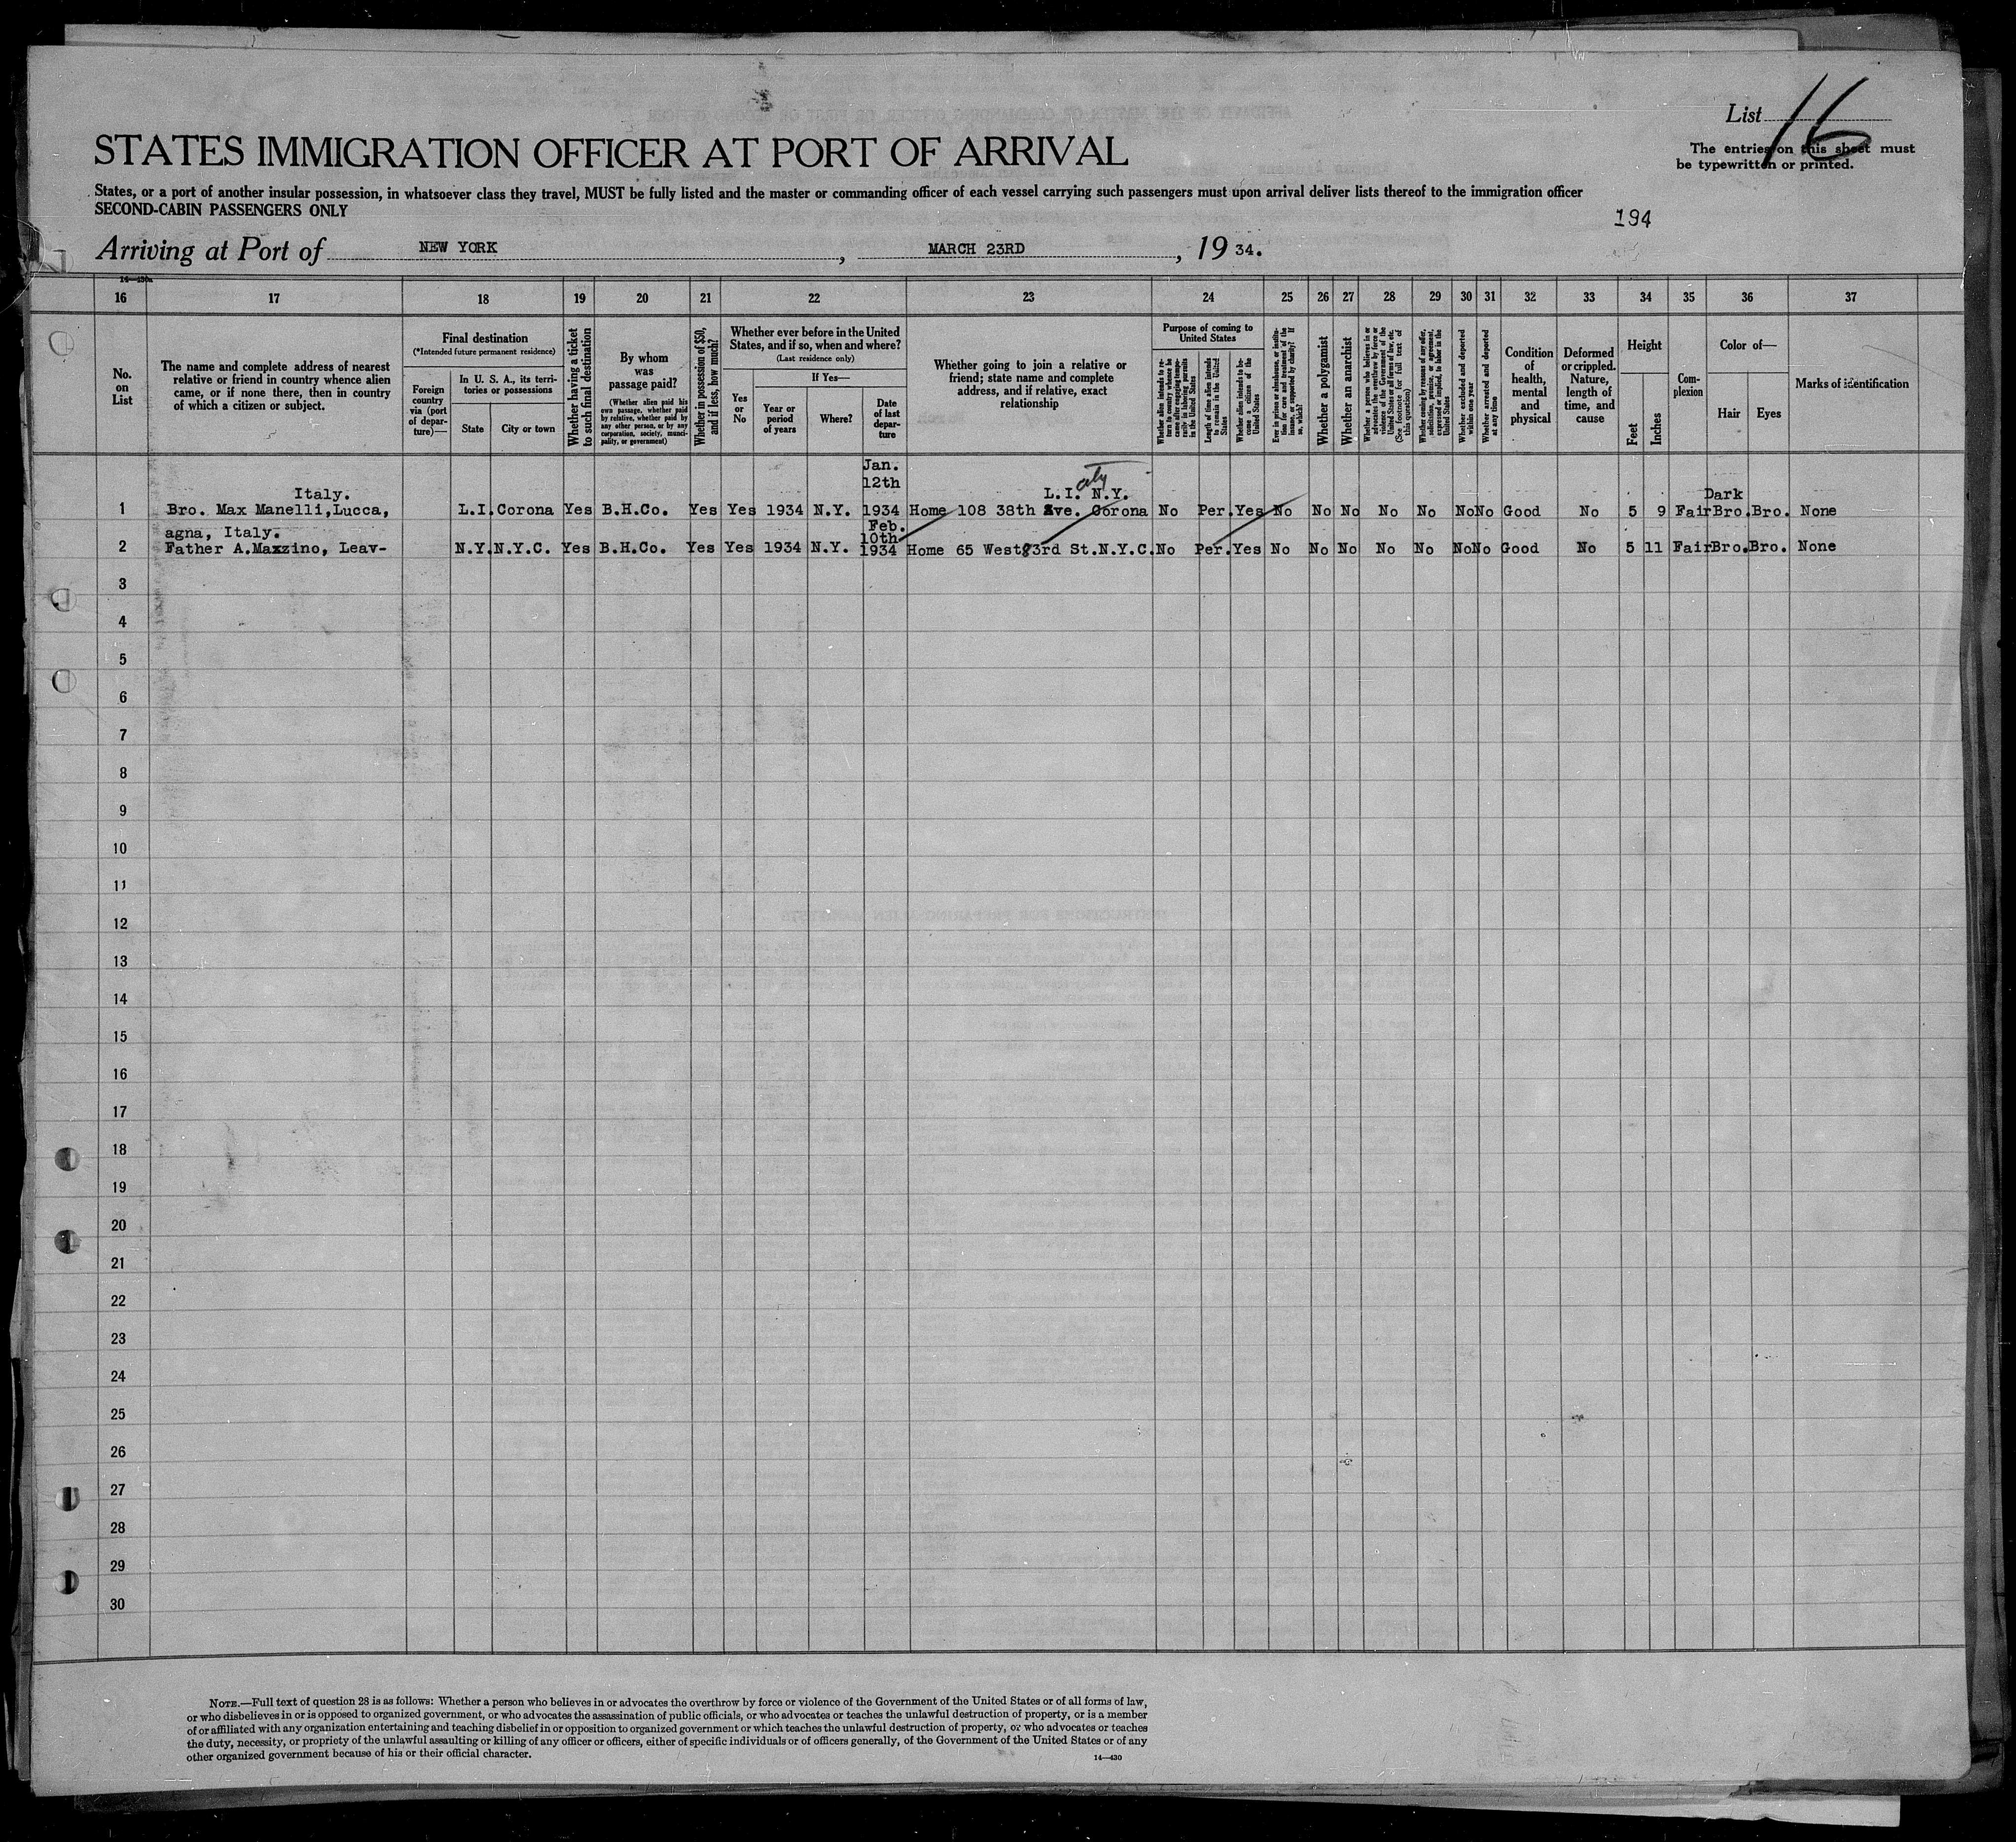 List 16
The entries on this sheet must
be typewritten or printed.
STATES IMMIGRATION OFFICER AT PORT OF ARRIVAL
States, or a port of another insular possession, in whatsoever class they travel, MUST be fully listed and the master or commanding officer of each vessel carrying such passengers must upon arrival deliver lists thereof to the immigration officer
SECOND-CABIN PASSENGERS ONLY
194
Arriving at Port of NEW YORK, MARCH 23RD, 19 34.
16 17 18 19 20 21 22 23 24 25 26 27 28 29 30 31 32 33 34 35 36 37
No. on List
The name and complete address of nearest
relative or friend in country whence alien
came, or if none there, then in country
of which a citizen or subject.
Final destination
(*Intended future permanent residence)
Foreign country via (port of departure)—
In U. S. A., its territories or possessions
State
City or town
Whether having a ticket to such final destination
By whom was passage paid?
(Whether alien paid his own passage, whether paid by relative, whether paid by any other person, or by any corporation, society, municipality, or government)
Whether in possession of $50, and if less, how much?
Whether ever before in the United States, and if so, when and where?
(Last residence only)
Yes or No
If Yes—
Year or period of years
Where?
Date of last departure
Whether going to join a relative or
friend; state name and complete
address, and if relative, exact
relationship
Purpose of coming to United States
Whether alien intends to return to country whence he came after engaging temporarily in laboring pursuits in the United States
Length of time alien intends to remain in the United States
Whether alien intends to become a citizen of the United States
Ever in prison or almshouse, or institution for care and treatment of the insane, or supported by charity? If so, which?
Whether a polygamist
Whether an anarchist
Whether a person who believes in or advocates the overthrow by force or violence of the Government of the United States or all forms of law, etc. (See footnote for full text of this question)
Whether coming by reasons of any offer, solicitation, promise, or agreement, expressed or implied, to labor in the United States
Whether excluded and deported within one year
Whether arrested and deported at any time
Condition of health, mental and physical
Deformed or crippled. Nature, length of time, and cause
Height
Feet
Inches
Complexion
Color of—
Hair
Eyes
Marks of identification
Jan.
12th
Italy. L.I. city N.Y. Dark
1 Bro. Max Manelli,Lucca, L.I. Corona Yes B.H.Co. Yes Yes 1934 N.Y. 1934 Home 108 38th Ave. Corona No Per. Yes No No No No No No No Good No 5 9 Fair Bro. Bro. None
agna, Italy. Feb.
10th
2 Father A.Mazzino, Leav- N.Y. N.Y.C. Yes B.H.Co. Yes Yes 1934 N.Y. 1934 Home 65 West 83rd St.N.Y.C. No Per. Yes No No No No No No No Good No 5 11 Fair Bro. Bro. None
3
4
5
6
7
8
9
10
11
12
13
14
15
16
17
18
19
20
21
22
23
24
25
26
27
28
29
30
NOTE.—Full text of question 28 is as follows: Whether a person who believes in or advocates the overthrow by force or violence of the Government of the United States or of all forms of law,
or who disbelieves in or is opposed to organized government, or who advocates the assassination of public officials, or who advocates or teaches the unlawful destruction of property, or is a member
of or affiliated with any organization entertaining and teaching disbelief in or opposition to organized government or which teaches the unlawful destruction of property, or who advocates or teaches
the duty, necessity, or propriety of the unlawful assaulting or killing of any officer or officers, either of specific individuals or of officers generally, of the Government of the United States or of any
other organized government because of his or their official character.
14—430